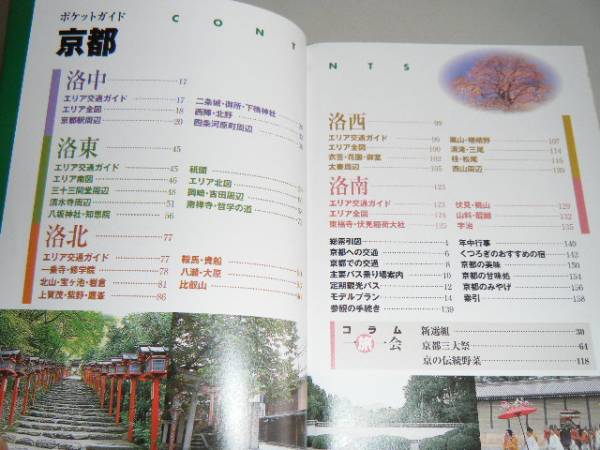 ポケットガイド
京都
CONT
NTS
洛中 17
エリア交通ガイド 17
エリア全図 18
京都駅周辺 20
二条城・御所・下鴨神社
西陣・北野
四条河原町周辺
洛東 45
エリア交通ガイド 45
エリア南図 46
三十三間堂周辺 48
清水寺周辺 51
八坂神社・知恩院 56
祇園
エリア北図
岡崎・吉田周辺
南禅寺・哲学の道
洛北 77
エリア交通ガイド 77
一乗寺・修学院 78
北山・宝ヶ池・岩倉 81
上賀茂・紫野・鷹峯 86
鞍馬・貴船
八瀬・大原
比叡山
洛西 99
エリア交通ガイド 99
エリア全図 100
衣笠・花園・御室 102
太秦周辺 105
嵐山・嵯峨野 107
清滝・三尾 114
桂・松尾 116
西山周辺 120
洛南 123
エリア交通ガイド 123
エリア全図 124
東福寺・伏見稲荷大社 125
伏見・桃山 129
山科・醍醐 132
宇治 135
総索引図 4
京都への交通 6
京都での交通 8
主要バス乗り場案内 10
定期観光バス 12
モデルプラン 14
参観の手続き 139
年中行事 140
くつろぎのおすすめの宿 142
京都の美味 150
京都の甘味処 154
京都のみやげ 156
索引 158
コラム
一旅一会
新選組 30
京都三大祭 64
京の伝統野菜 118